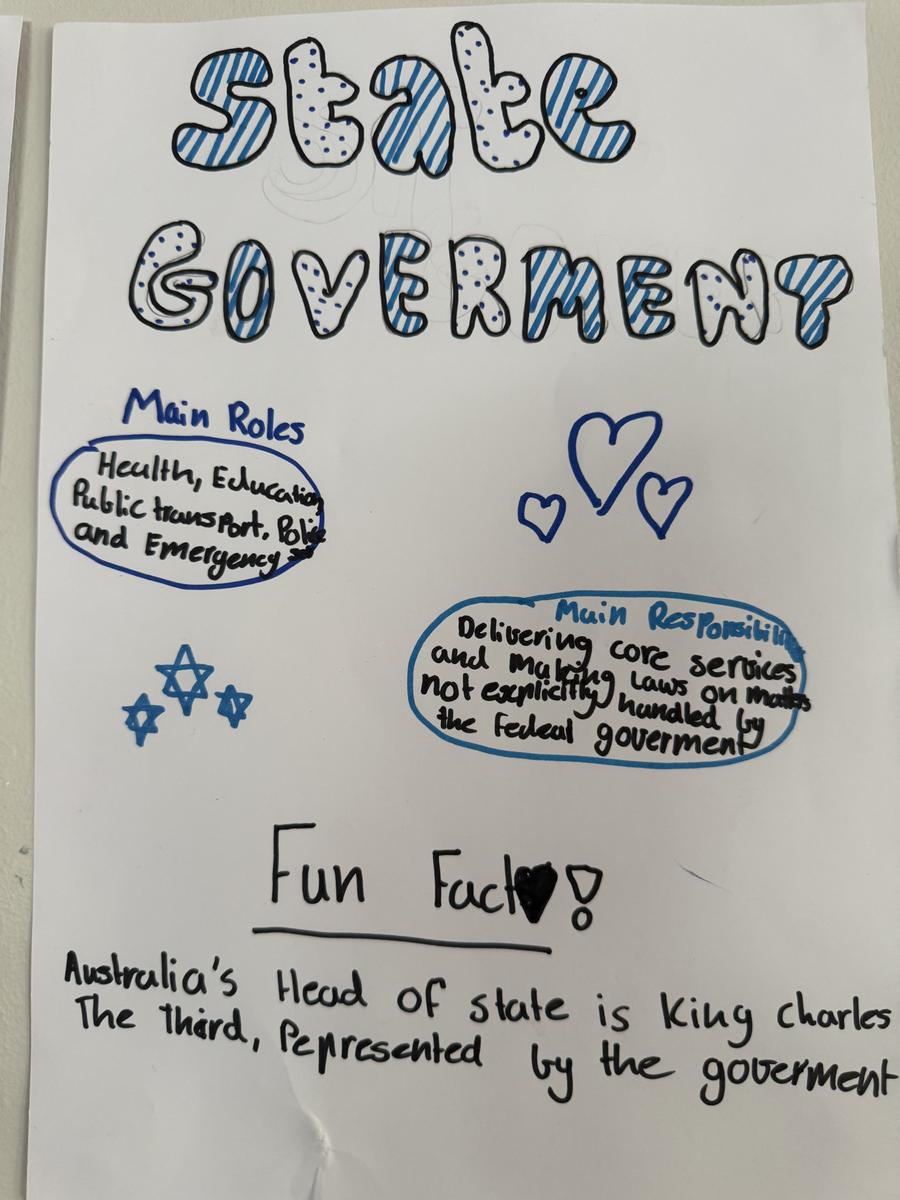 State
GOVERMENT
Main Roles
Health, Education,
Public transport, Police
and Emergency
Main Responsibility
Delivering core services
and making laws on matters
not explicitly handled by
the Federal goverment
Fun Fact!
Australia's Head of state is King Charles
The Third, Represented by the goverment